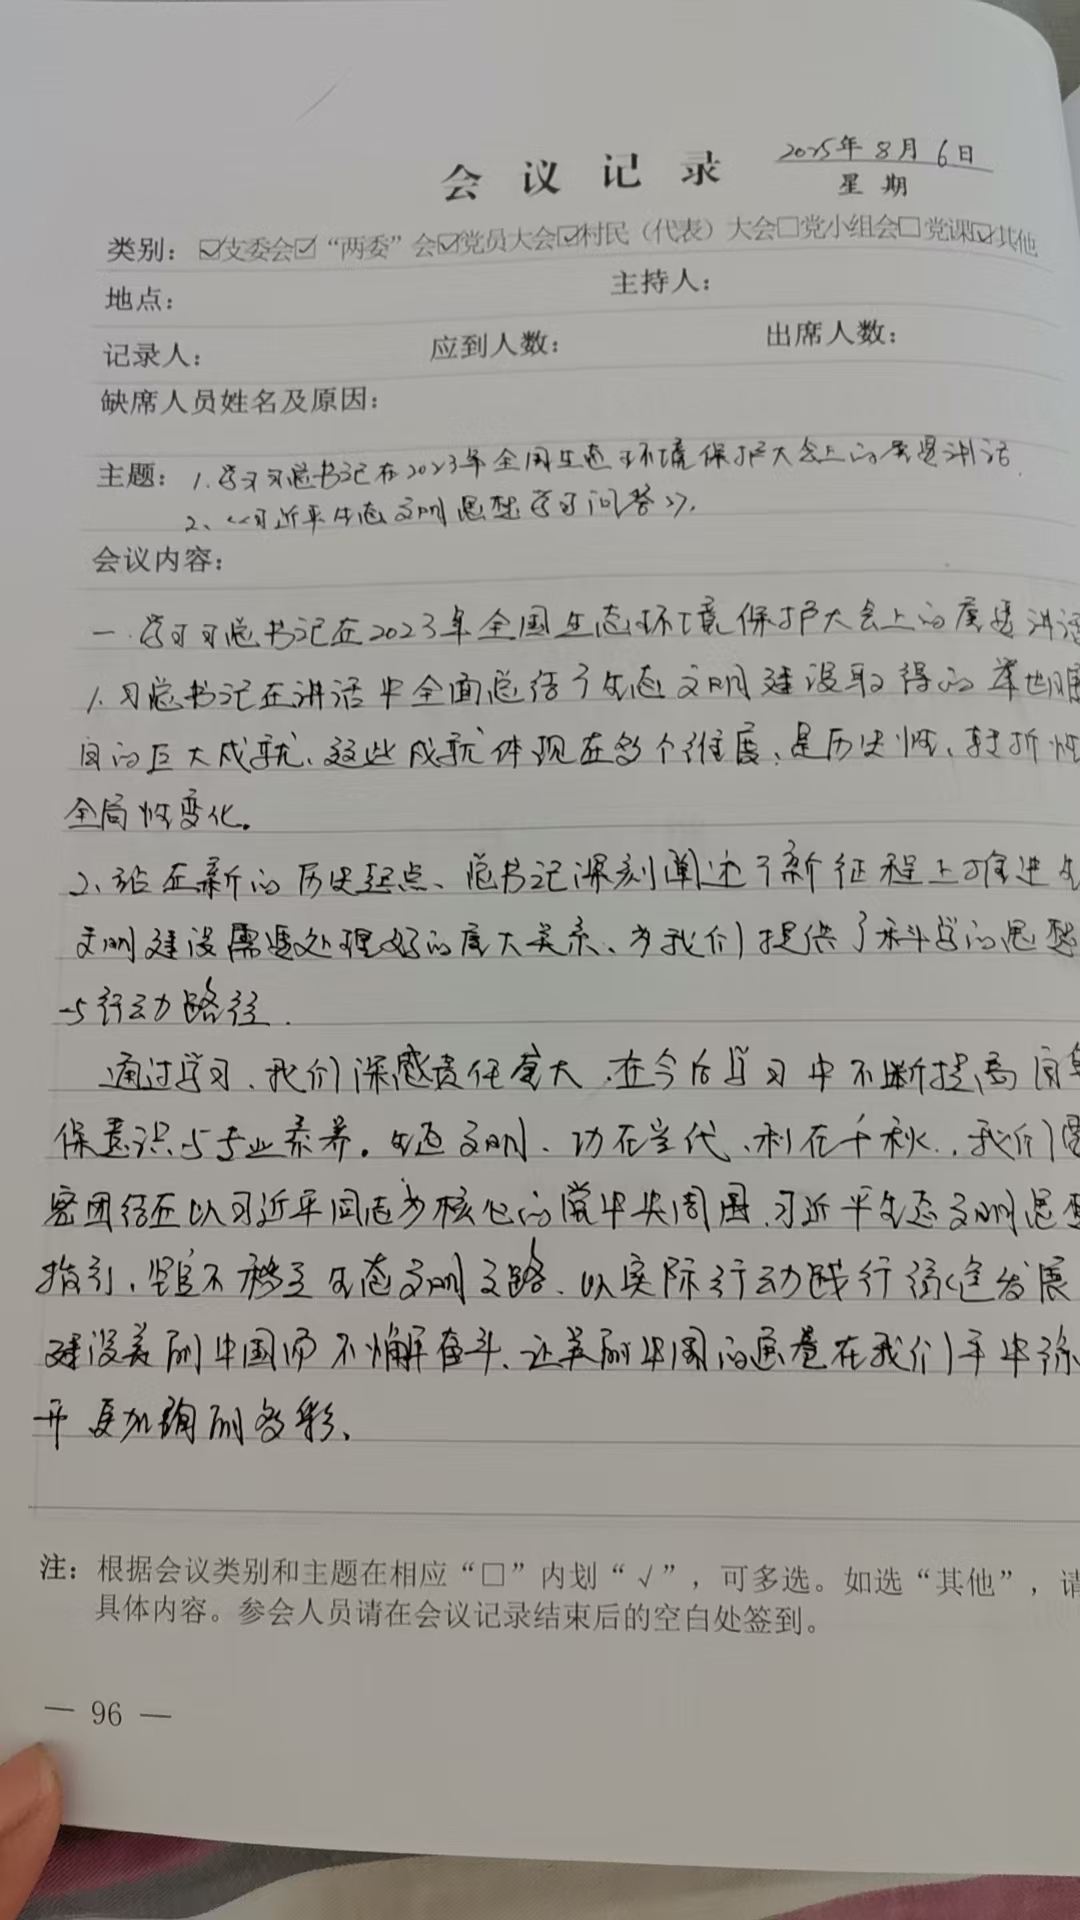 会 议 记 录
2025年 8月 6日
星 期
类别：☑支委会☑“两委”会☑党员大会☑村民（代表）大会□党小组会□党课☑其他
地点： 主持人：
记录人： 应到人数： 出席人数：
缺席人员姓名及原因：
主题：1.学习习总书记在2023年全国生态环境保护大会上的重要讲话.
2、《习近平生态文明思想学习问答》.
会议内容：
一.学习习总书记在2023年全国生态环境保护大会上的重要讲话
1.习总书记在讲话中全面总结了生态文明建设取得的举世瞩
目的巨大成就、这些成就体现在多个维度，是历史性、转折性
全局性变化。
2、站在新的历史起点、总书记深刻阐述了新征程上推进生
文明建设需要处理好的重大关系、为我们提供了科学的思想
与行动路径.
通过学习、我们深感责任重大.在今后学习中不断提高自身
保意识与专业素养。生态文明、功在当代、利在千秋.，我们
密团结在以习近平同志为核心的党中央周围、习近平生态文明思想
指引，坚定不移走生态文明之路、以实际行动践行绿色发展
建设美丽中国而不懈奋斗、让美丽中国的画卷在我们手中
开更加绚丽多彩、
注：根据会议类别和主题在相应“□”内划“√”，可多选。如选“其他”，请
具体内容。参会人员请在会议记录结束后的空白处签到。
— 96 —